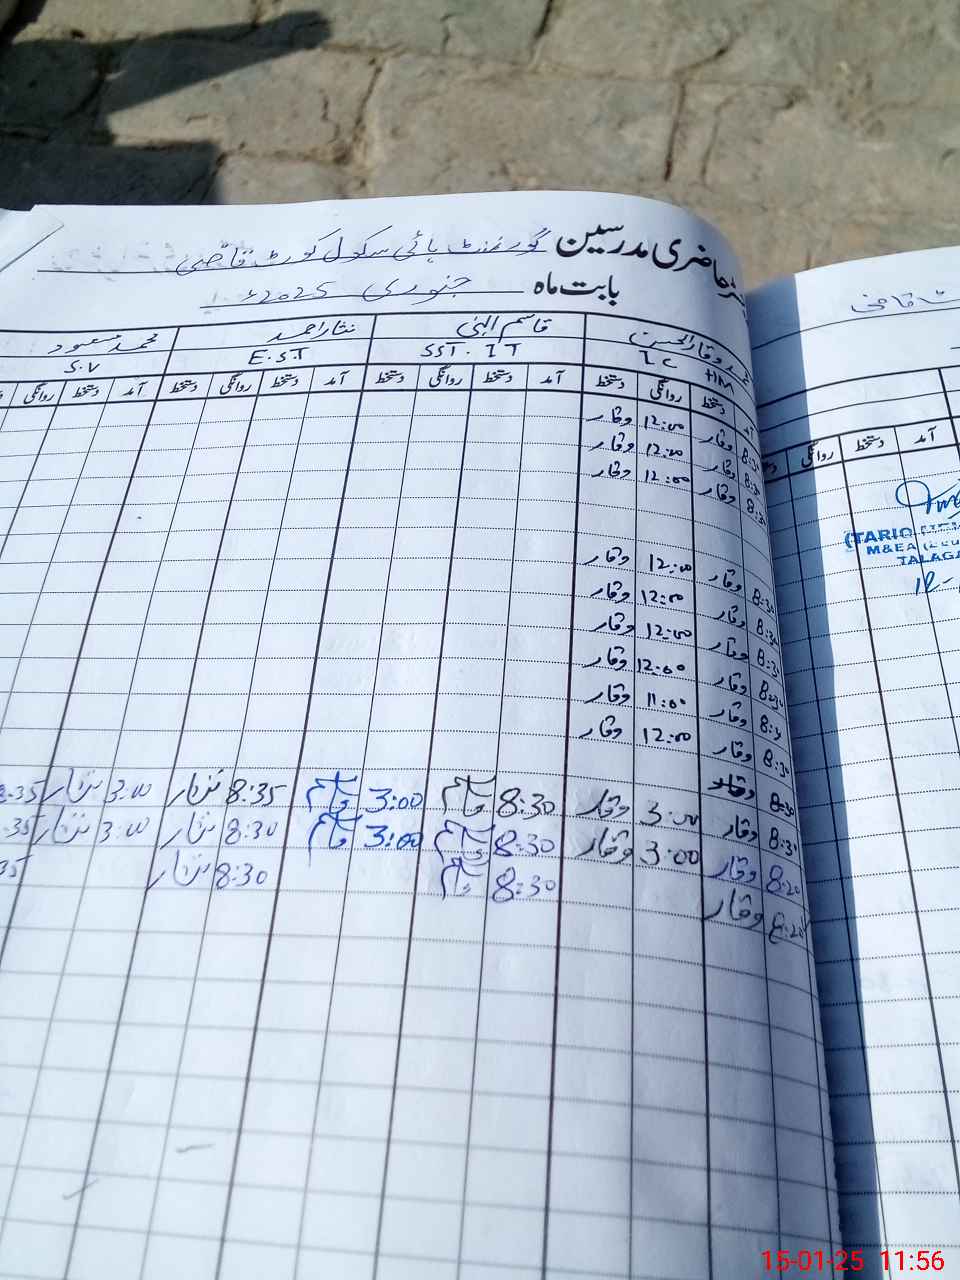 حاضری مدرسین گورنمنٹ ہائی سکول کورٹ قاضی
بابت ماہ جنوری 2025ء
محمد وقار الحسن قاسم الہٰی نثار احمد محمد مسعود
HM IC SST. IT E.S.T S.V
آمد دستخط روانگی دستخط آمد دستخط روانگی دستخط آمد دستخط روانگی دستخط آمد دستخط روانگی
8:30 وقار 12:00 وقار
8:30 وقار 12:00 وقار
8:30 وقار 12:00 وقار
8:30 وقار 12:00 وقار
8:30 وقار 12:00 وقار
8:30 وقار 12:00 وقار
8:30 وقار 12:00 وقار
8:30 وقار 11:00 وقار
8:30 وقار 12:00 وقار
8:30 وقار 3:00 وقار 8:30 قاسم 3:00 قاسم 8:35 نثار 3:00 نثار 8:35
8:30 وقار 3:00 وقار 8:30 قاسم 3:00 قاسم 8:30 نثار 3:00 نثار 35
8:20 وقار 8:30 قاسم 8:30 نثار 35
8:20 وقار
قاضی
آمد دستخط روانگی
(TARIQ
M&EA
TALAGA
15-01-25 11:56